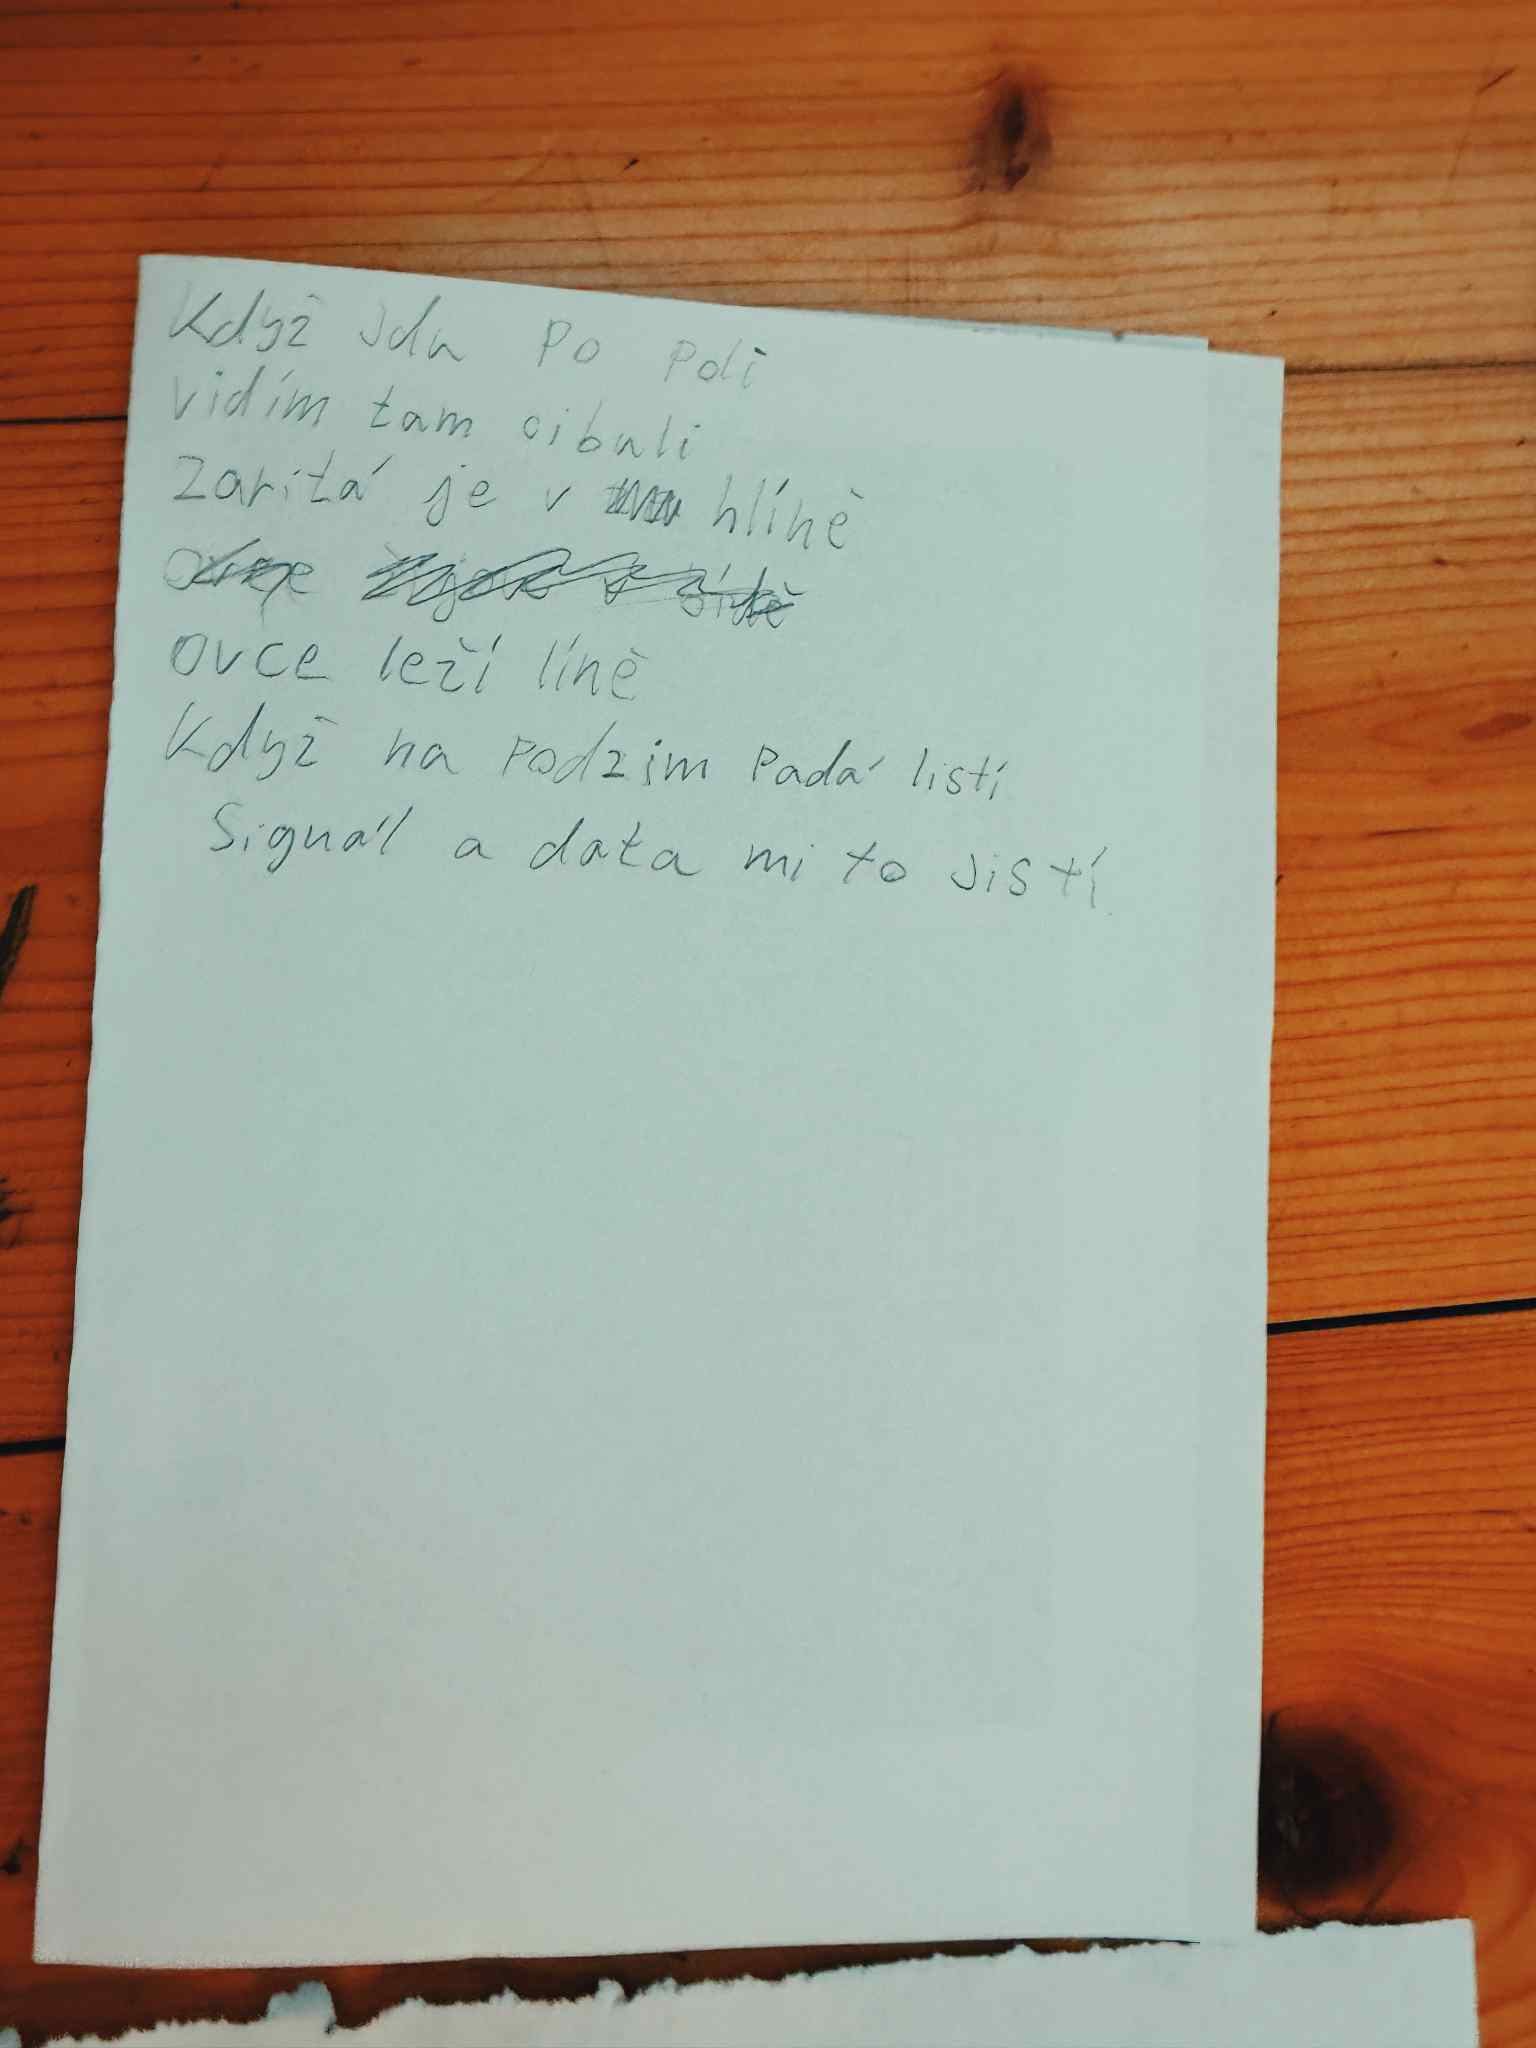 Když jdu po poli
vidím tam cibuli
Zaritá je v hlíně
ovce leží líně
Když na podzim padá listí
Signál a data mi to jistí